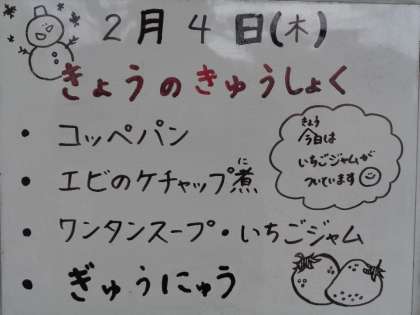 2月4日(木)
きょうのきゅうしょく
・コッペパン
・エビのケチャップ煮
に
・ワンタンスープ・いちごジャム
・ぎゅうにゅう
きょう
今日は
いちごジャムが
ついています